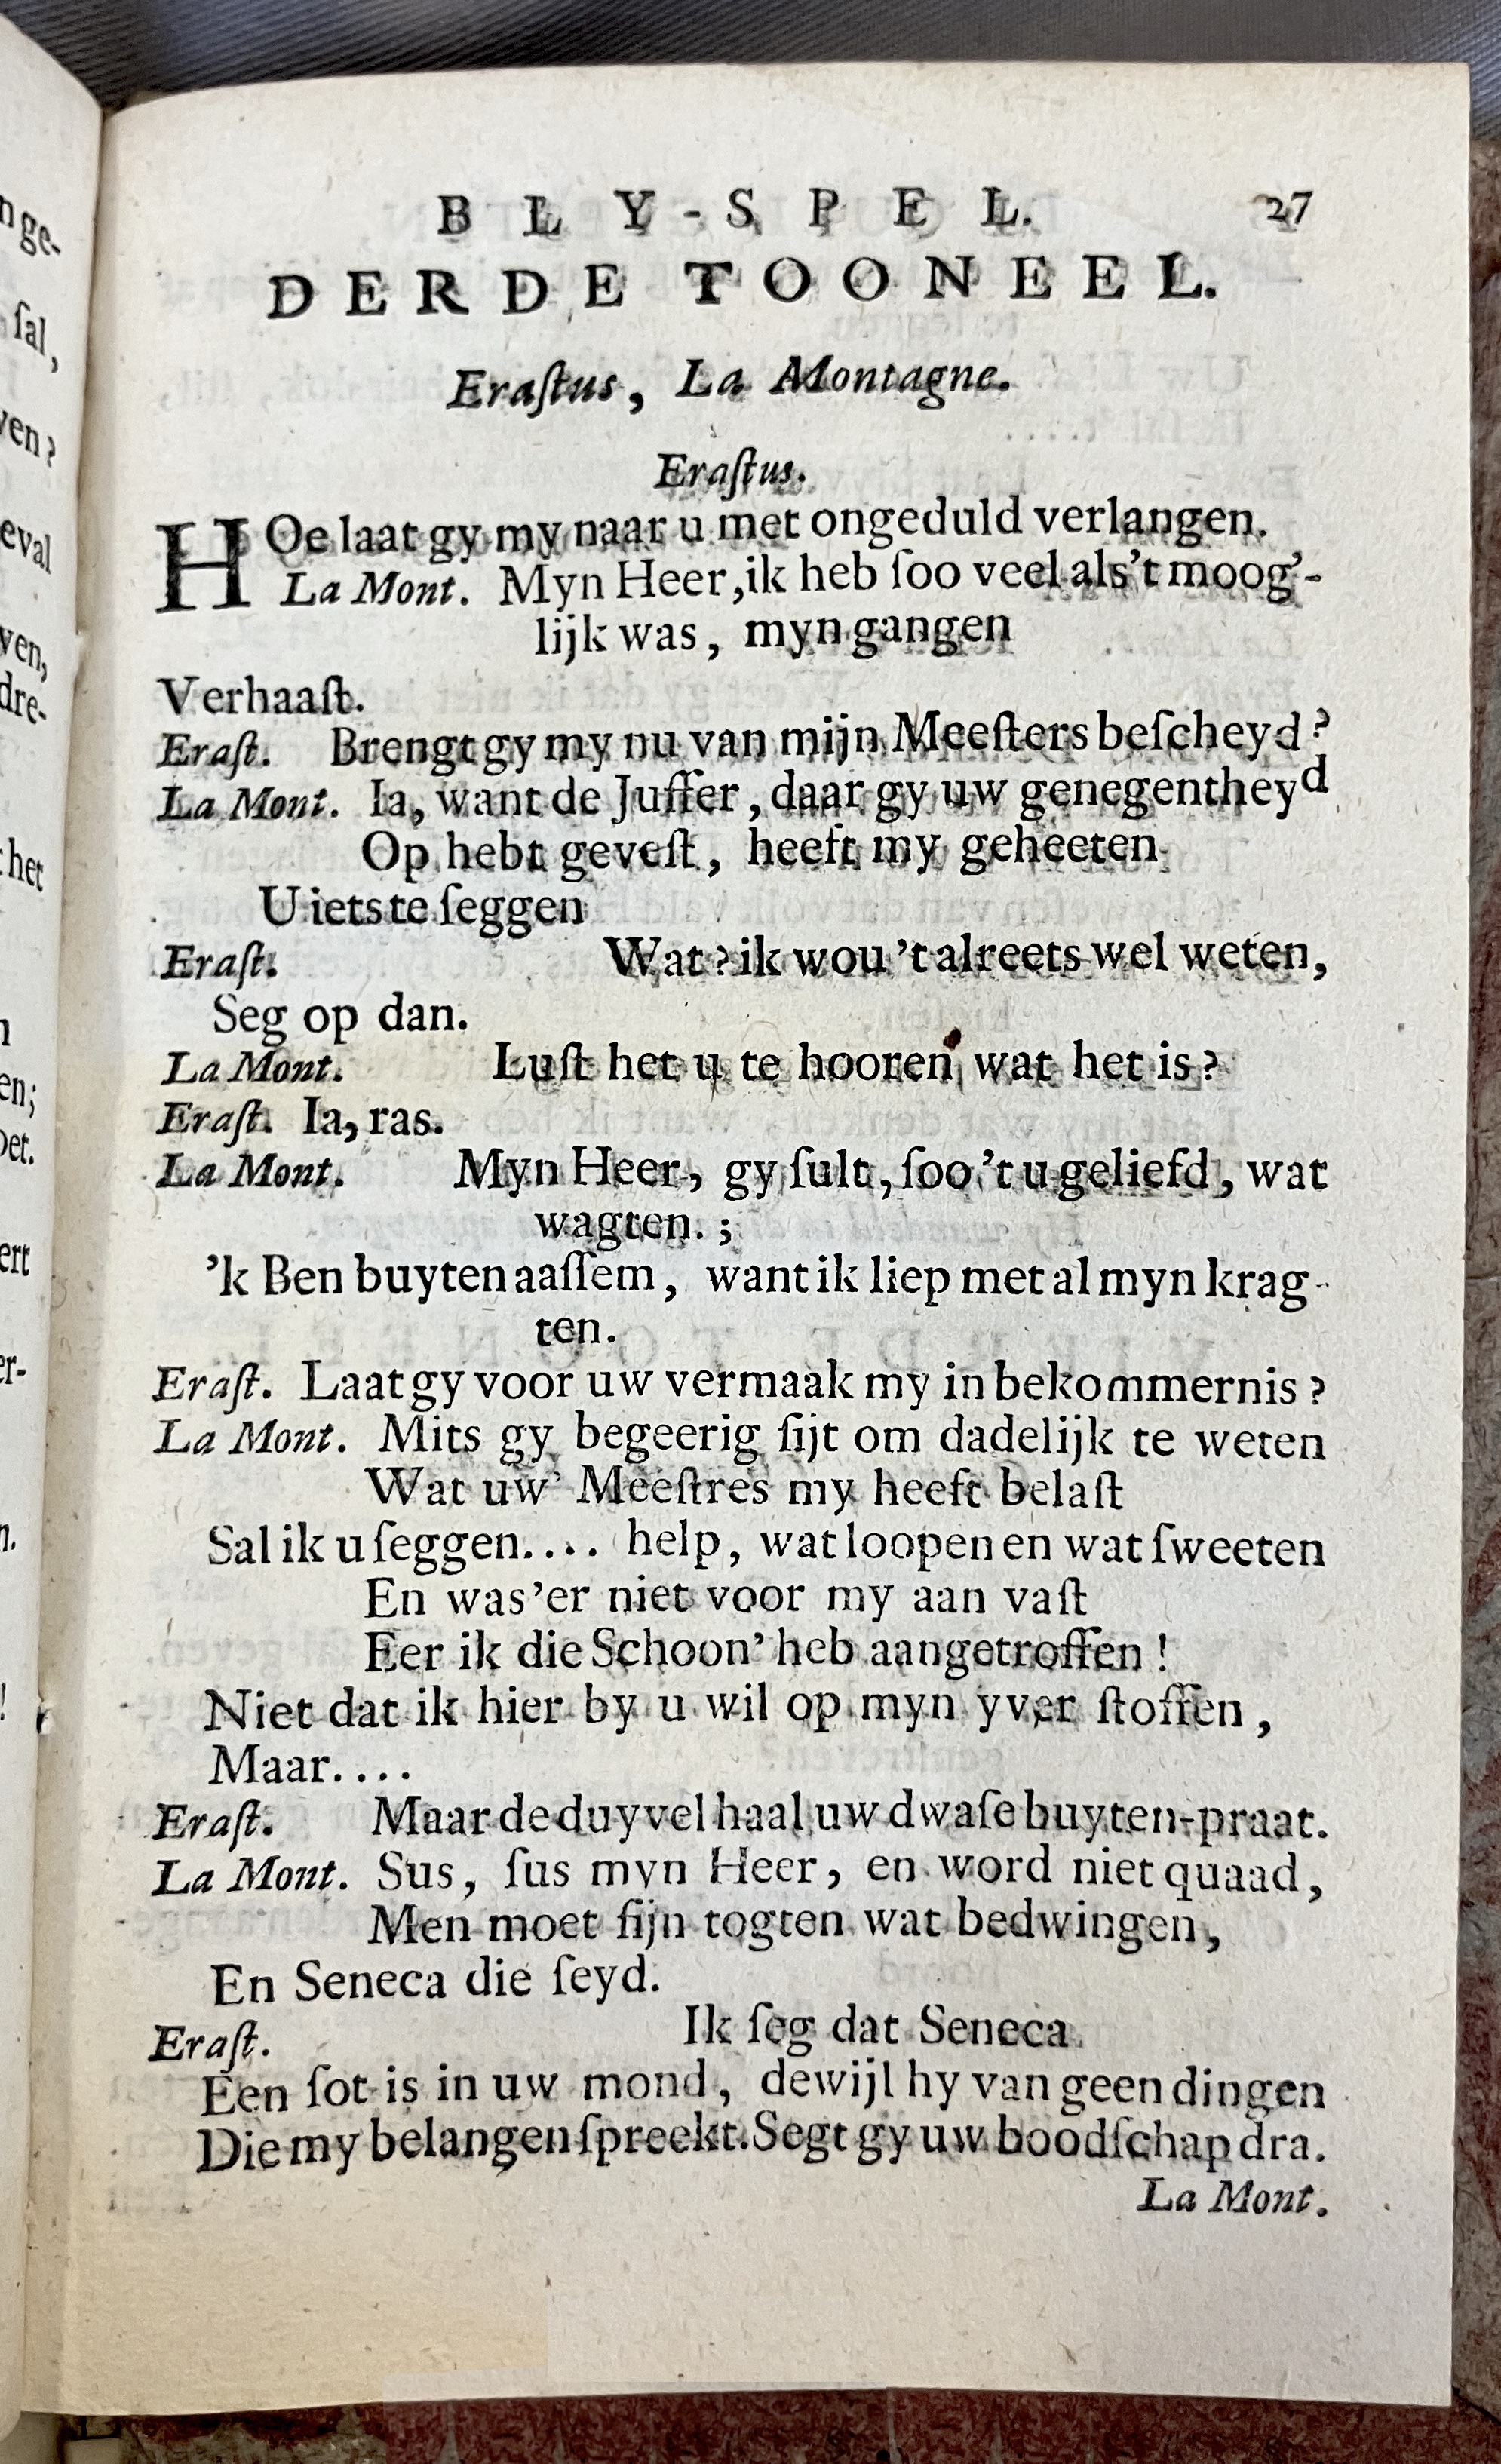 n ge-
ſal,
ven?
eval
ven,
dre-
het
en;
oet.
ert
er-
n.
!
BLY-SPEL. 27
DERDE TOONEEL.
Eraſtus, La Montagne.
Eraſtus.
HOe laat gy my naar u met ongeduld verlangen.
La Mont. Myn Heer, ik heb ſoo veel als't moog'-
lijk was, myn gangen
Verhaaſt.
Eraſt. Brengt gy my nu van mijn Meeſters beſcheyd?
La Mont. Ia, want de Juffer, daar gy uw genegentheyd
Op hebt geveſt, heeft my geheeten
U iets te ſeggen
Eraſt. Wat? ik wou 't alreets wel weten,
Seg op dan.
La Mont. Luſt het u te hooren wat het is?
Eraſt. Ia, ras.
La Mont. Myn Heer, gy ſult, ſoo 't u geliefd, wat
wagten. ;
'k Ben buyten aaſſem, want ik liep met al myn krag-
ten.
Eraſt. Laat gy voor uw vermaak my in bekommernis?
La Mont. Mits gy begeerig ſijt om dadelijk te weten
Wat uw' Meeſtres my heeft belaſt
Sal ik u ſeggen.... help, wat loopen en wat ſweeten
En was'er niet voor my aan vaſt
Eer ik die Schoon' heb aangetroffen!
Niet dat ik hier by u wil op myn yver ſtoffen,
Maar....
Eraſt. Maar de duyvel haal uw dwaſe buyten-praat.
La Mont. Sus, ſus myn Heer, en word niet quaad,
Men moet ſijn togten wat bedwingen,
En Seneca die ſeyd.
Eraſt. Ik ſeg dat Seneca
Een ſot is in uw mond, dewijl hy van geen dingen
Die my belangen ſpreekt. Segt gy uw boodſchap dra.
La Mont.